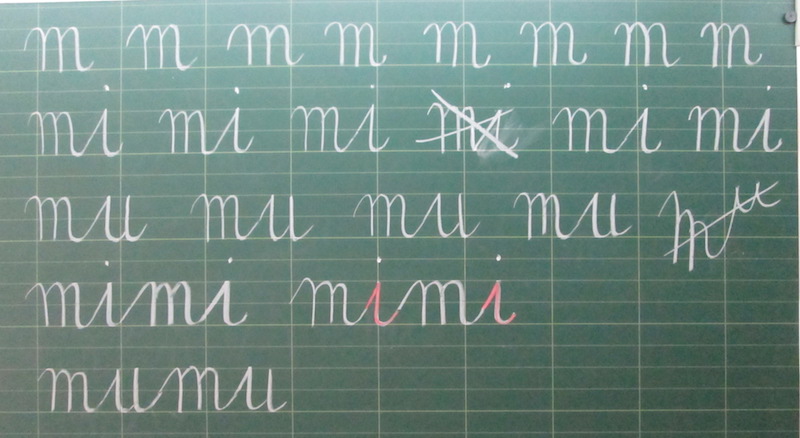 m m m m m m m m
mi mi mi mi mi mi
mu mu mu mu mu
mimi mimi
mumu